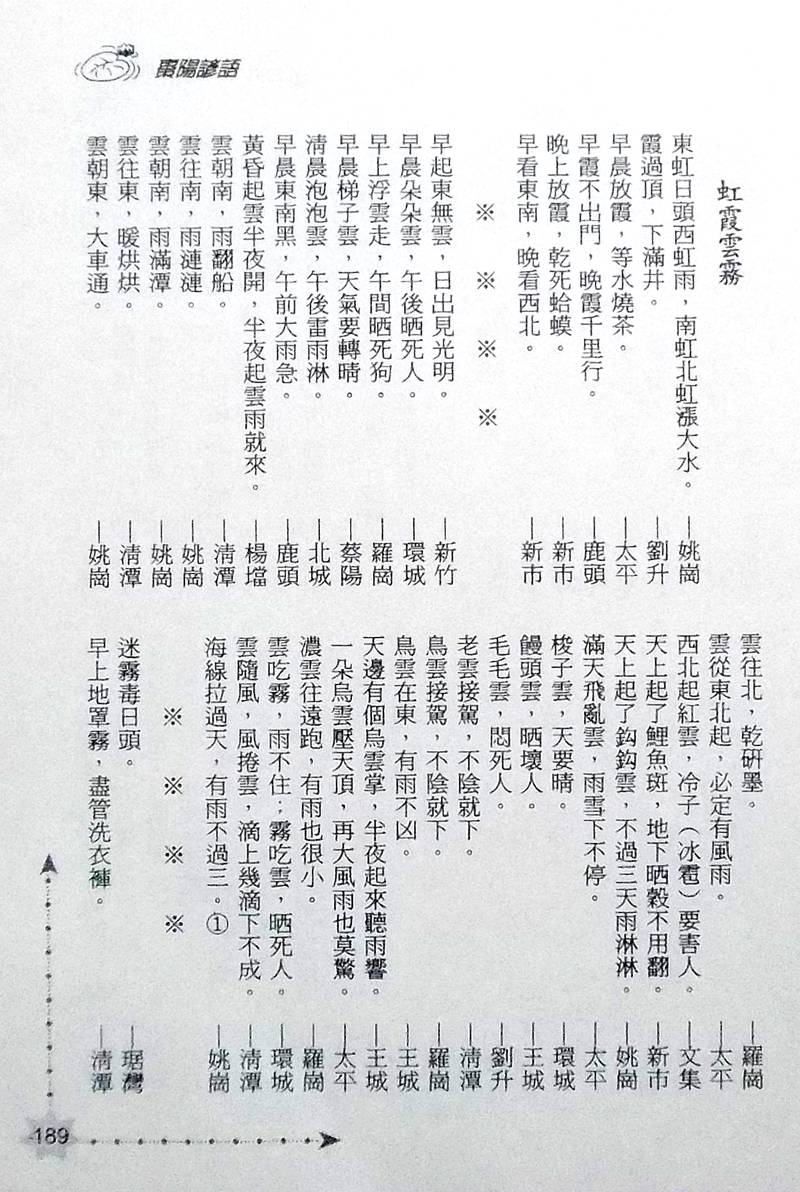 棗陽諺語
虹霞雲霧
東虹日頭西虹雨，南虹北虹漲大水。——姚崗
霞過頂，下滿井。——劉升
早晨放霞，等水燒茶。——太平
早霞不出門，晚霞千里行。——鹿頭
晚上放霞，乾死蛤蟆。——新市
早看東南，晚看西北。——新市
※ ※ ※ ※
早起東無雲，日出見光明。——新竹
早晨朵朵雲，午後晒死人。——環城
早上浮雲走，午間晒死狗。——羅崗
早晨梯子雲，天氣要轉晴。——蔡陽
清晨泡泡雲，午後雷雨淋。——北城
早晨東南黑，午前大雨急。——鹿頭
黃昏起雲半夜開，半夜起雲雨就來。——楊壋
雲朝南，雨翻船。——清潭
雲往南，雨漣漣。——姚崗
雲朝南，雨滿潭。——姚崗
雲往東，暖烘烘。——清潭
雲朝東，大車通。——姚崗
雲往北，乾研墨。——羅崗
雲從東北起，必定有風雨。——太平
西北起紅雲，冷子（冰雹）要害人。——文集
天上起了鯉魚斑，地下晒穀不用翻。——新市
天上起了鈎鈎雲，不過三天雨淋淋。——姚崗
滿天飛亂雲，雨雪下不停。——太平
梭子雲，天要晴。——環城
饅頭雲，晒壞人。——王城
毛毛雲，悶死人。——劉升
老雲接駕，不陰就下。——清潭
烏雲接駕，不陰就下。——羅崗
烏雲在東，有雨不凶。——王城
天邊有個烏雲掌，半夜起來聽雨響。——王城
一朵烏雲壓天頂，再大風雨也莫驚。——太平
濃雲往遠跑，有雨也很小。——羅崗
雲吃霧，雨不住；霧吃雲，晒死人。——環城
雲隨風，風捲雲，滴上幾滴下不成。——清潭
海線拉過天，有雨不過三。①——姚崗
※ ※ ※ ※
迷霧毒日頭。——琚灣
早上地罩霧，盡管洗衣褲。——清潭
189